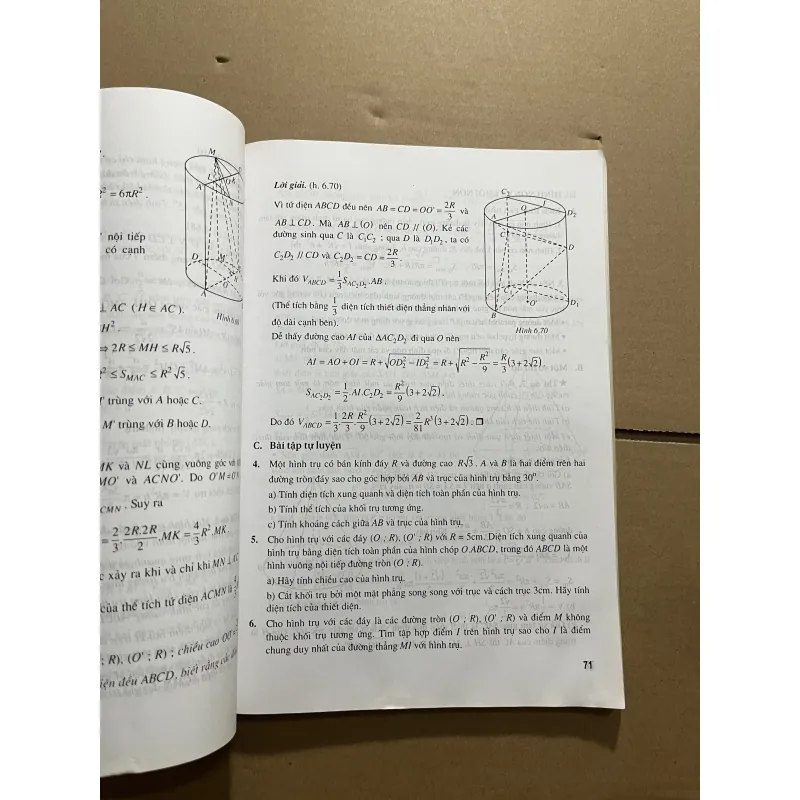 ² = 6πR² .
nội tiếp
có cạnh
⊥ AC (H ∈ AC).
H² .
⇒ 2R ≤ MH ≤ R√5 .
² ≤ S_MAC ≤ R²√5 .
' trùng với A hoặc C.
M' trùng với B hoặc D.
MK và NL cùng vuông góc với
MO' và ACNO'. Do O'M =
CMN . Suy ra
= 2/3 . 2R.2R/2 .MK = 4/3 R².MK .
c xảy ra khi và chỉ khi MN ⊥
của thể tích tứ diện ACMN là
; R), (O' ; R) ; chiều cao OO'
diện đều ABCD, biết rằng các
M
L
K
A
D
M'
O
A
Hình
Lời giải. (h. 6.70)
Vì tứ diện ABCD đều nên AB = CD = OO' = 2R/3 và
AB ⊥ CD . Mà AB ⊥ (O) nên CD // (O). Kẻ các
đường sinh qua C là C₁C₂ ; qua D là D₁D₂ , ta có
C₂D₂ // CD và C₂D₂ = CD = 2R/3 .
Khi đó V_ABCD = 1/3 S_AC₂D₂ .AB .
(Thể tích bằng 1/3 diện tích thiết diện thẳng nhân với
độ dài cạnh bên).
Dễ thấy đường cao AI của ΔAC₂D₂ đi qua O nên
C₂
I
O
D₂
A
C
D
C₁
O'
D₁
B
Hình 6.70
AI = AO + OI = R + √(OD₂² − ID₂²) = R + √(R² − R²/9) = R/3 (3 + 2√2) .
S_AC₂D₂ = 1/2 .AI.C₂D₂ = R²/9 (3 + 2√2) .
Do đó V_ABCD = 1/3 . 2R/3 . R²/9 (3 + 2√2) = 2/81 R³ (3 + 2√2) . ❒
C. Bài tập tự luyện
4. Một hình trụ có bán kính đáy R và đường cao R√3 . A và B là hai điểm trên hai
đường tròn đáy sao cho góc hợp bởi AB và trục của hình trụ bằng 30°.
a) Tính diện tích xung quanh và diện tích toàn phần của hình trụ.
b) Tính thể tích của khối trụ tương ứng.
c) Tính khoảng cách giữa AB và trục của hình trụ.
5. Cho hình trụ với các đáy (O ; R), (O' ; R) với R = 5cm. Diện tích xung quanh của
hình trụ bằng diện tích toàn phần của hình chóp O.ABCD, trong đó ABCD là một
hình vuông nội tiếp đường tròn (O ; R).
a) Hãy tính chiều cao của hình trụ.
b) Cắt khối trụ bởi một mặt phẳng song song với trục và cách trục 3cm. Hãy tính
diện tích của thiết diện.
6. Cho hình trụ với các đáy là các đường tròn (O ; R), (O' ; R) và điểm M không
thuộc khối trụ tương ứng. Tìm tập hợp điểm I trên hình trụ sao cho I là điểm
chung duy nhất của đường thẳng MI với hình trụ.
71